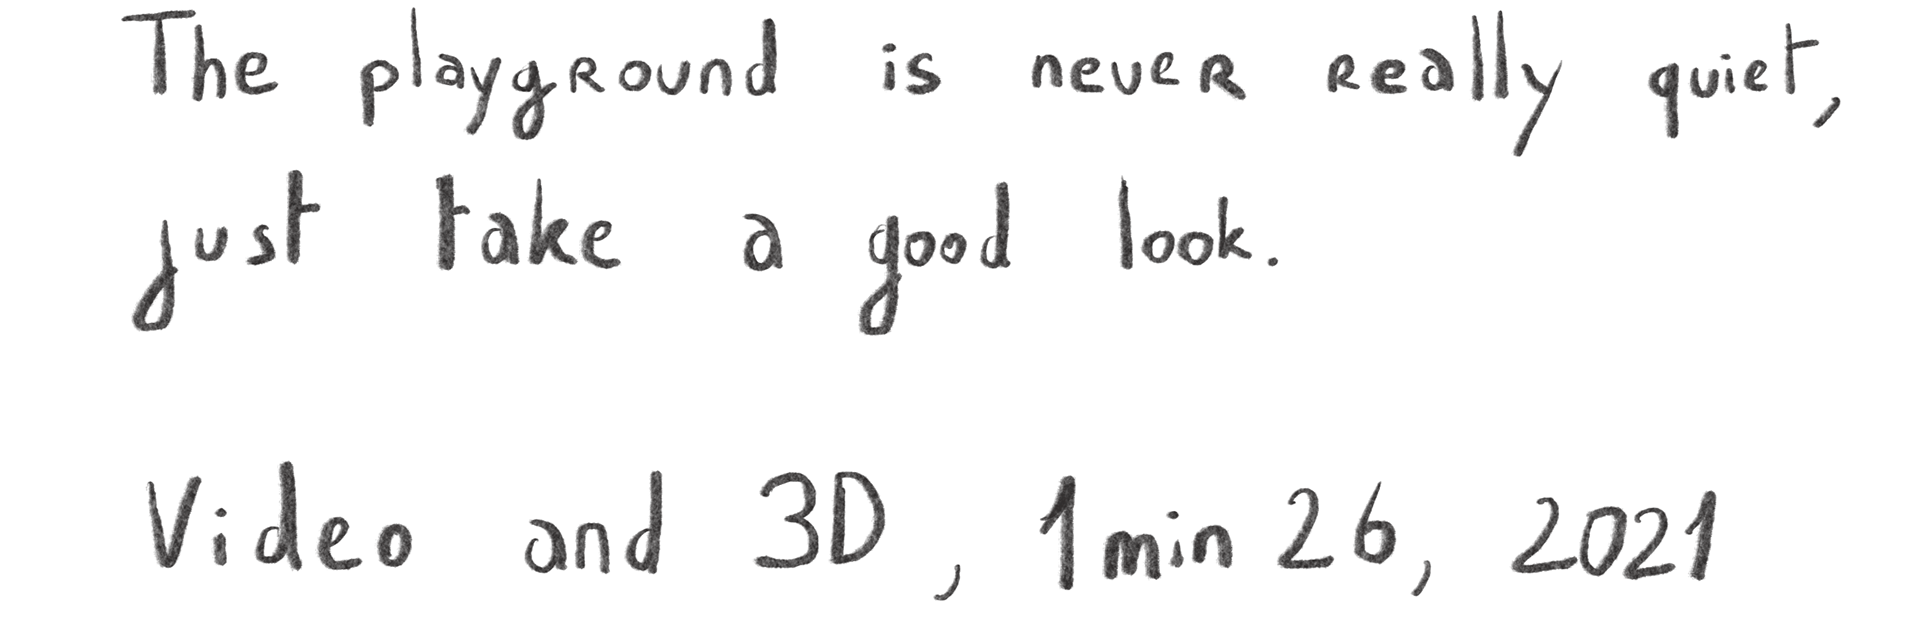 The playground is never really quiet,
just take a good look.
Video and 3D, 1min 26, 2021